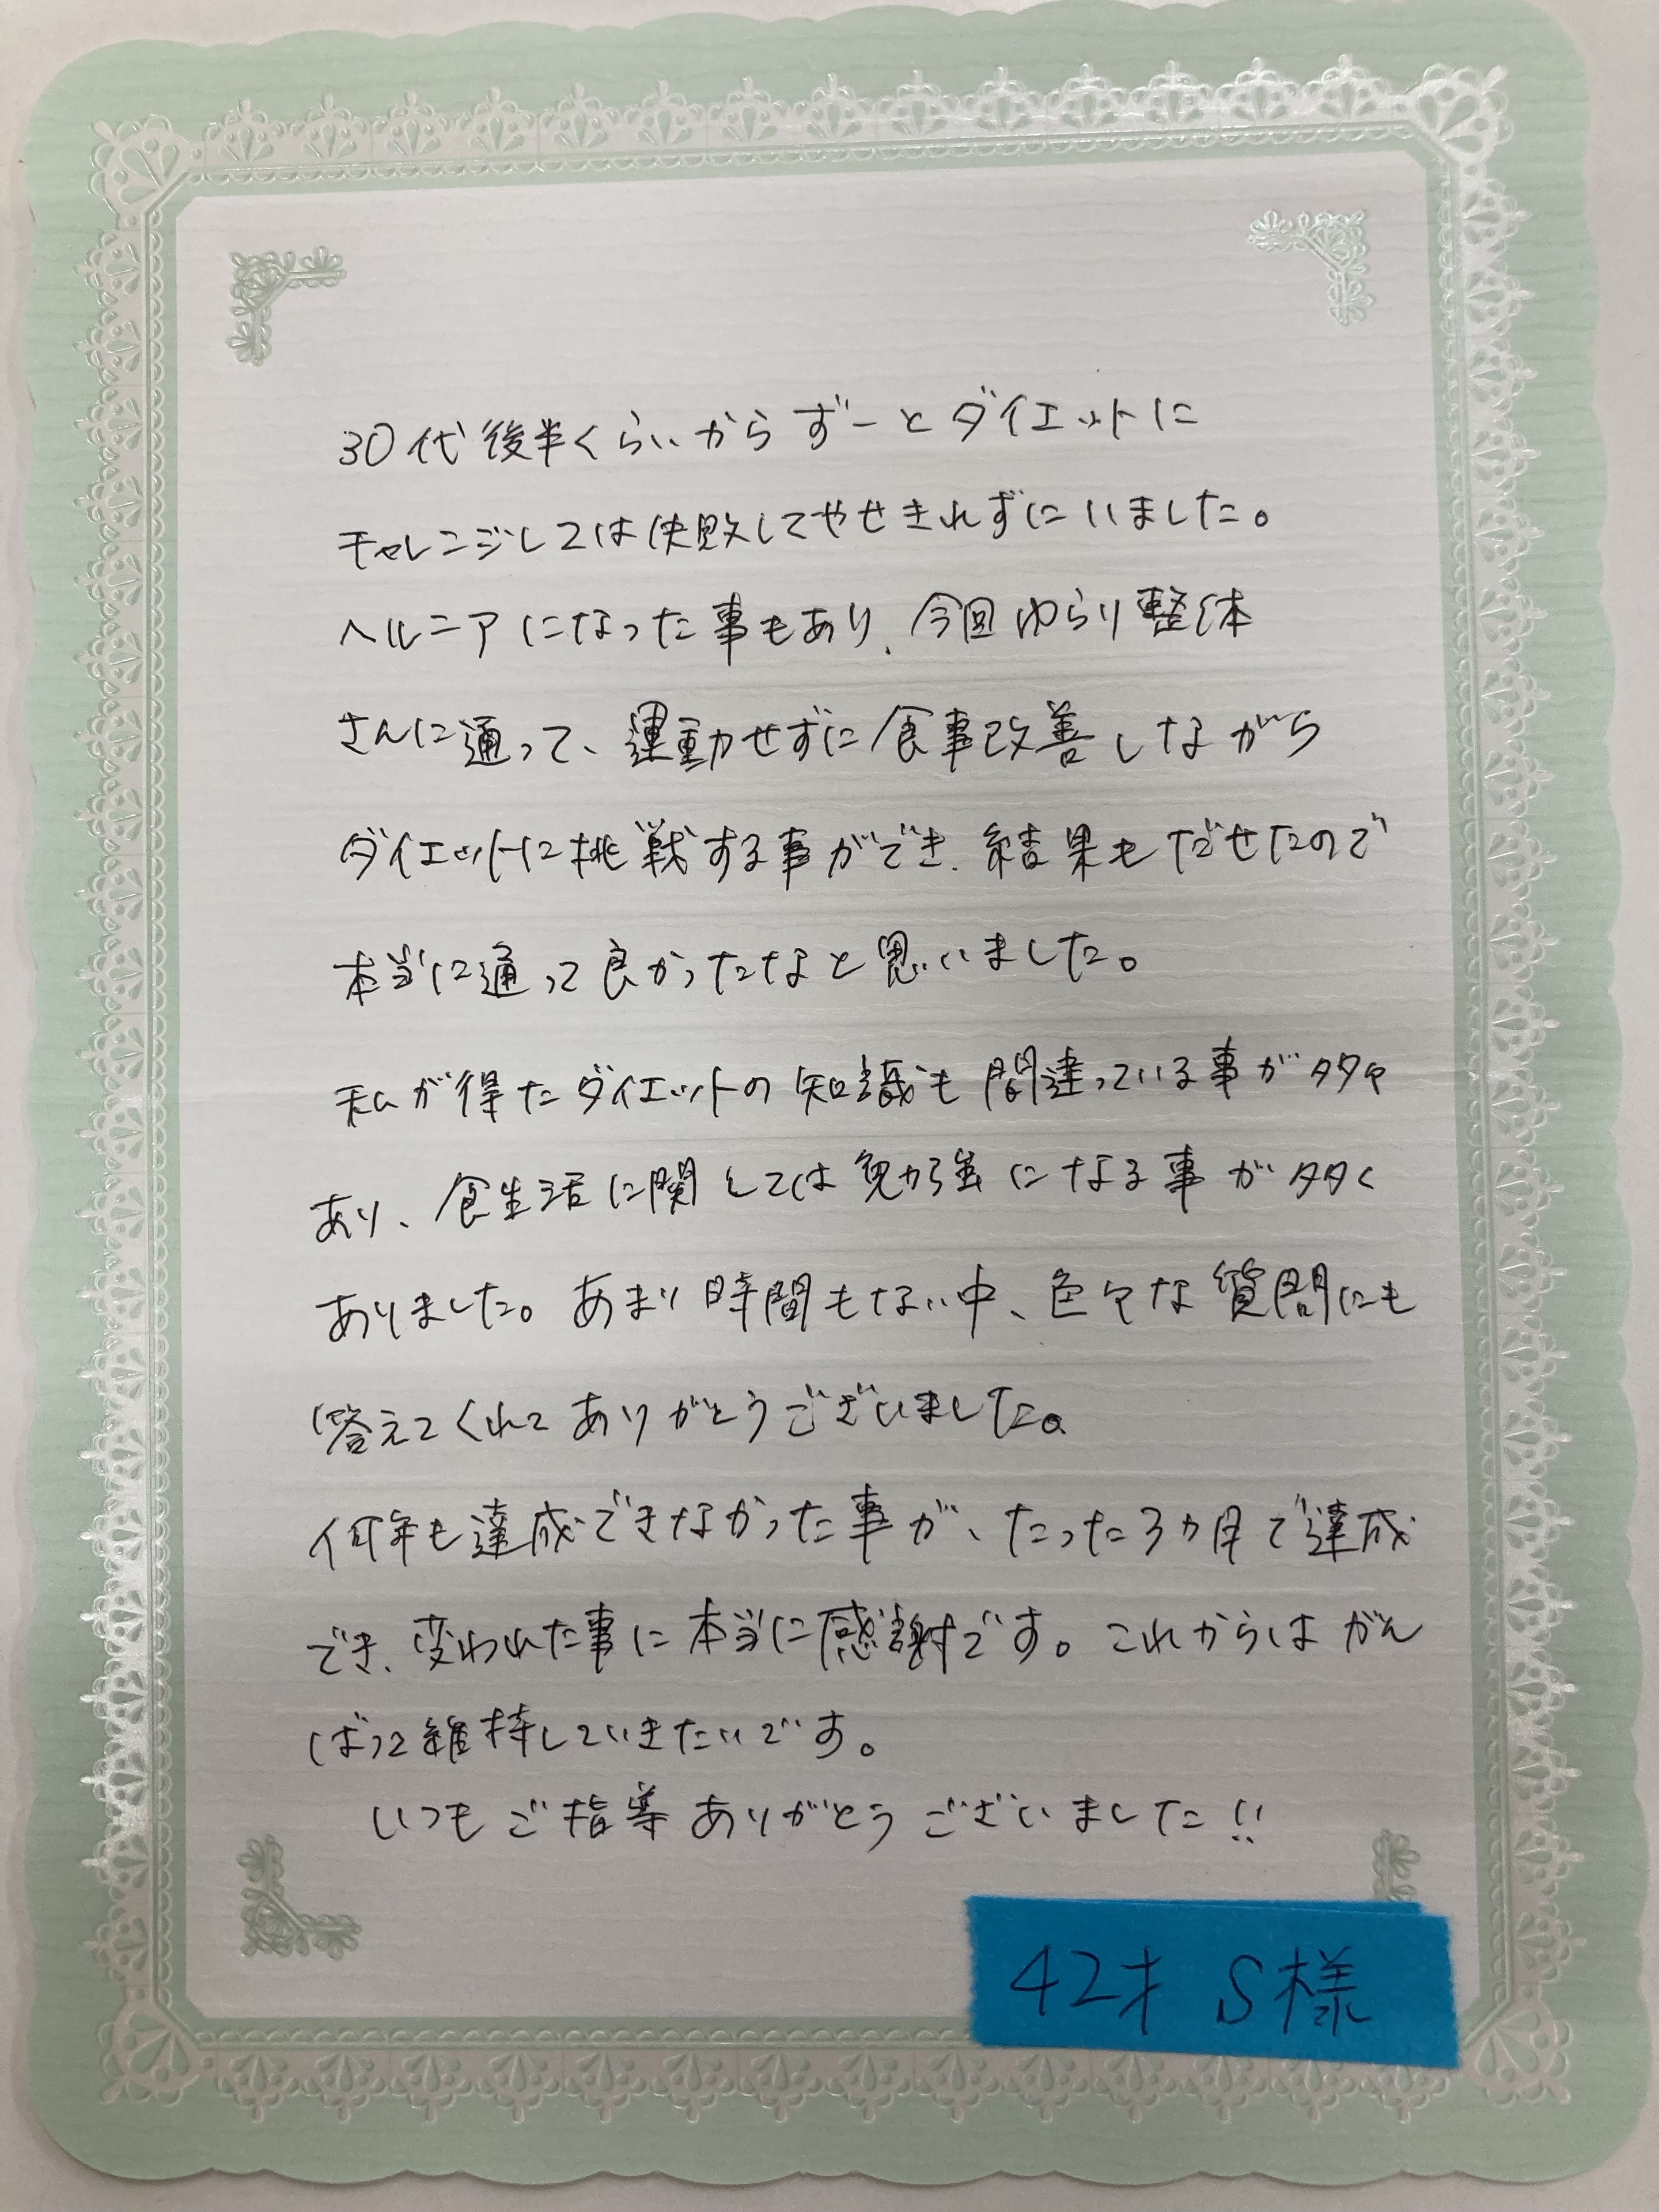 30代後半くらいからずーとダイエットに
チャレンジしては失敗してやせきれずにいました。
ヘルニアになった事もあり、今回ゆらり整体
さんに通って、運動せずに食事改善しながら
ダイエットに挑戦する事ができ、結果もだせたので
本当に通って良かったなと思いました。
私が得たダイエットの知識も間違っている事が多々
あり、食生活に関しては勉強になる事が多く
ありました。あまり時間もない中、色々な質問にも
答えてくれてありがとうございました。
何年も達成できなかった事が、たった3ヵ月で達成
でき、変われた事に本当に感謝です。これからはがん
ばって維持していきたいです。
いつもご指導ありがとうございました!!
42才 S様